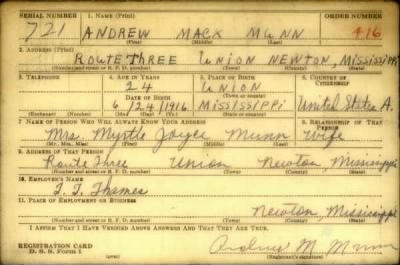 SERIAL NUMBER 1. NAME (Print) ORDER NUMBER
721 ANDREW MACK MUNN 416
(First) (Middle) (Last)
2. ADDRESS (Print)
ROUTE THREE UNION NEWTON, MISSISSIPPI
(Number and street or R. F. D. number) (Town) (County) (State)
3. TELEPHONE 4. AGE IN YEARS 5. PLACE OF BIRTH 6. COUNTRY OF CITIZENSHIP
24 UNION
DATE OF BIRTH (Town or county)
6/24/1916 MISSISSIPPI United States A.
(Exchange) (Number) (Mo.) (Day) (Yr.) (State or country)
7. NAME OF PERSON WHO WILL ALWAYS KNOW YOUR ADDRESS 8. RELATIONSHIP OF THAT PERSON
Mrs. Myrtle Joyce Munn Wife
(Mr., Mrs., Miss) (First) (Middle) (Last)
9. ADDRESS OF THAT PERSON
Route Three Union Newton Mississippi
(Number and street or R. F. D. number) (Town) (County) (State)
10. EMPLOYER'S NAME
T. T. Thames
11. PLACE OF EMPLOYMENT OR BUSINESS
Newton, Mississippi
(Number and street or R. F. D. number) (Town) (County) (State)
I AFFIRM THAT I HAVE VERIFIED ABOVE ANSWERS AND THAT THEY ARE TRUE.
REGISTRATION CARD
D. S. S. Form 1 Andrew M. Munn
(Registrant's signature)